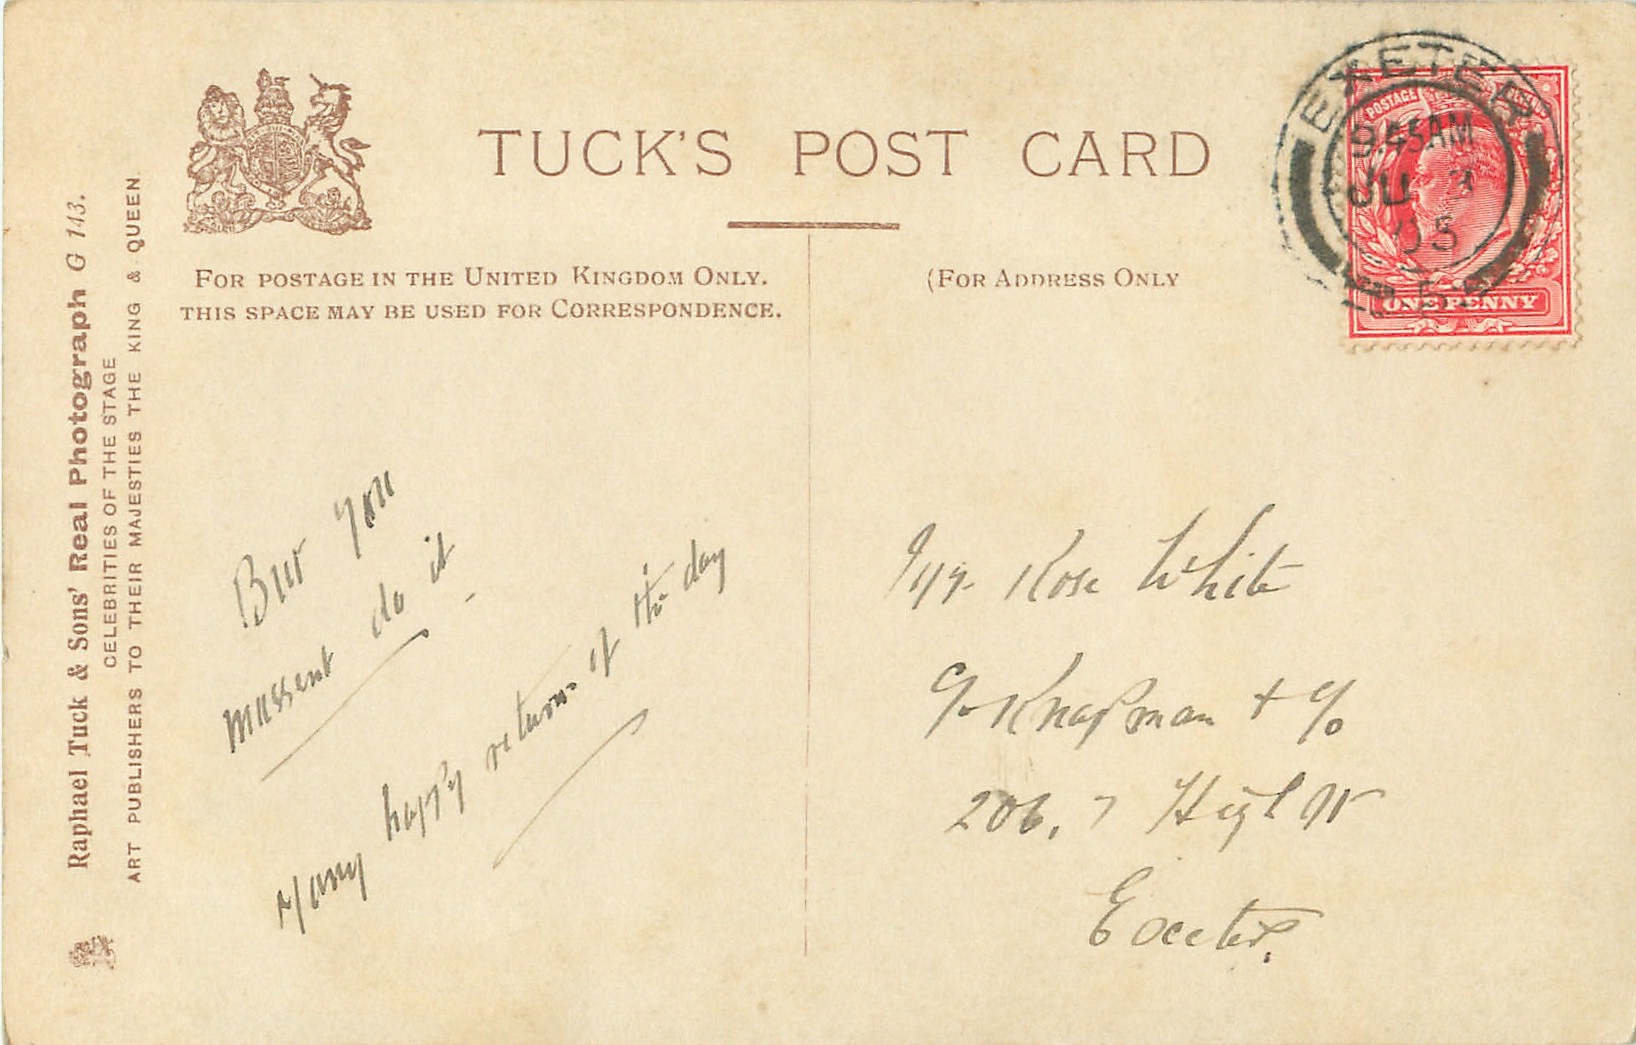 TUCK'S POST CARD
FOR POSTAGE IN THE UNITED KINGDOM ONLY.
THIS SPACE MAY BE USED FOR CORRESPONDENCE.
(FOR ADDRESS ONLY
Raphael Tuck & Sons' Real Photograph G 143.
CELEBRITIES OF THE STAGE
ART PUBLISHERS TO THEIR MAJESTIES THE KING & QUEEN
EXETER
9.45AM
JU 3
05
POSTAGE
ONE PENNY
But you
mussent do it
Many happy returns of the day
Rose White
Knapman + Co
206, 7 High St
Exeter.